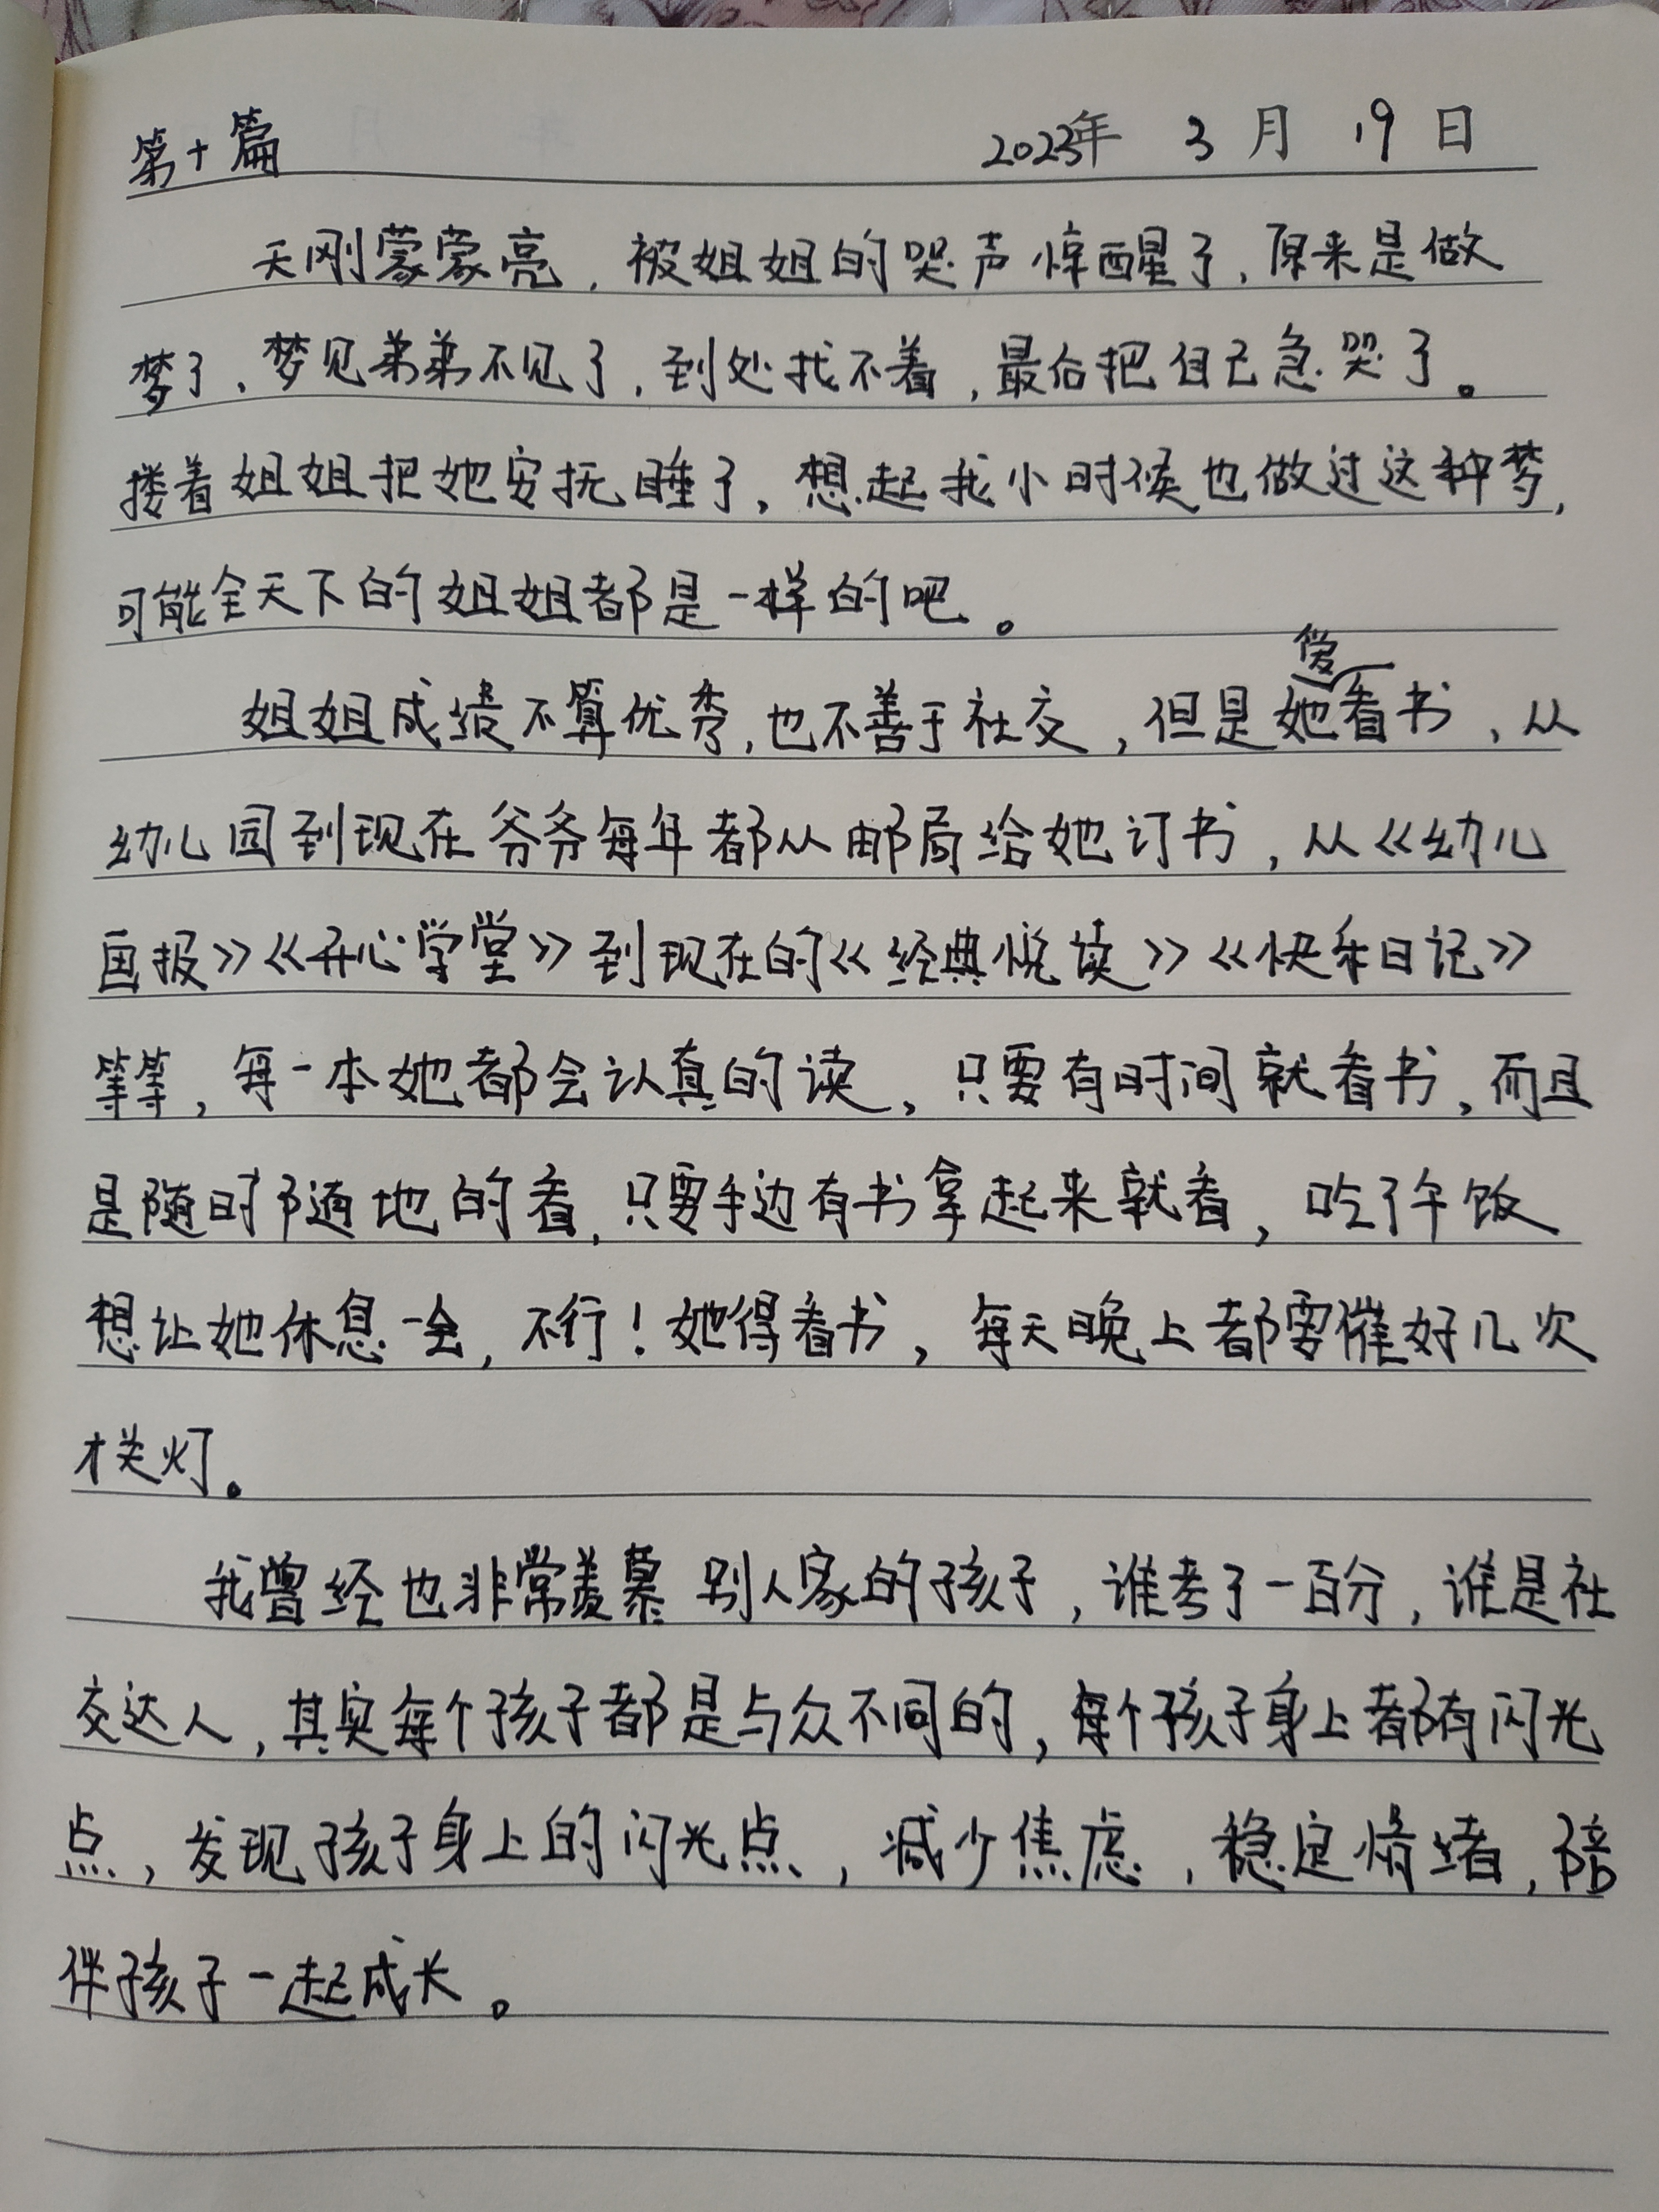 第十篇 2023年 3 月 19 日
天刚蒙蒙亮，被姐姐的哭声惊醒了，原来是做
梦了，梦见弟弟不见了，到处找不着，最后把自己急哭了。
搂着姐姐把她安抚睡了，想起我小时候也做过这种梦，
可能全天下的姐姐都是一样的吧。
姐姐成绩不算优秀，也不善于社交，但是她爱看书，从
幼儿园到现在爷爷每年都从邮局给她订书，从《幼儿
画报》《开心学堂》到现在的《经典悦读》《快乐日记》
等等，每一本她都会认真的读，只要有时间就看书，而且
是随时随地的看，只要手边有书拿起来就看，吃了午饭
想让她休息一会，不行！她得看书，每天晚上都要催好几次
才关灯。
我曾经也非常羡慕别人家的孩子，谁考了一百分，谁是社
交达人，其实每个孩子都是与众不同的，每个孩子身上都有闪光
点，发现孩子身上的闪光点，减少焦虑，稳定情绪，陪
伴孩子一起成长。